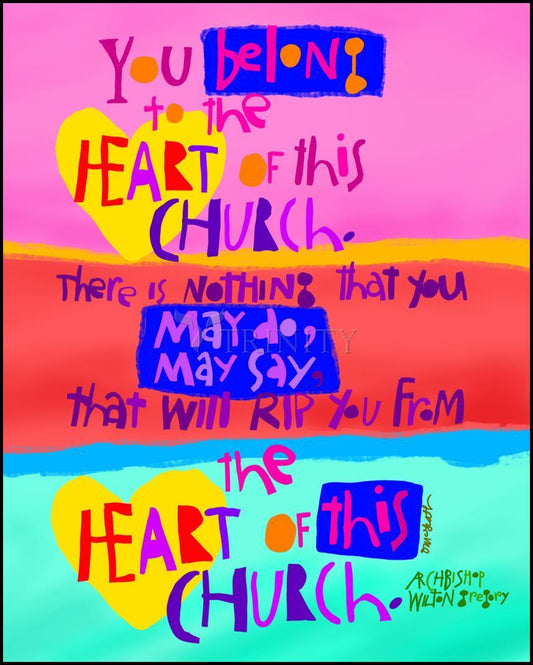 YOU belong
to the
HEART OF this
CHURCh.
There is NOTHING that you
May do,
TRINITY
May say,
that will RIP You FROM
the
HEART OF this
CHURCh.
ARCHBISHOP
WILTON GREGORY